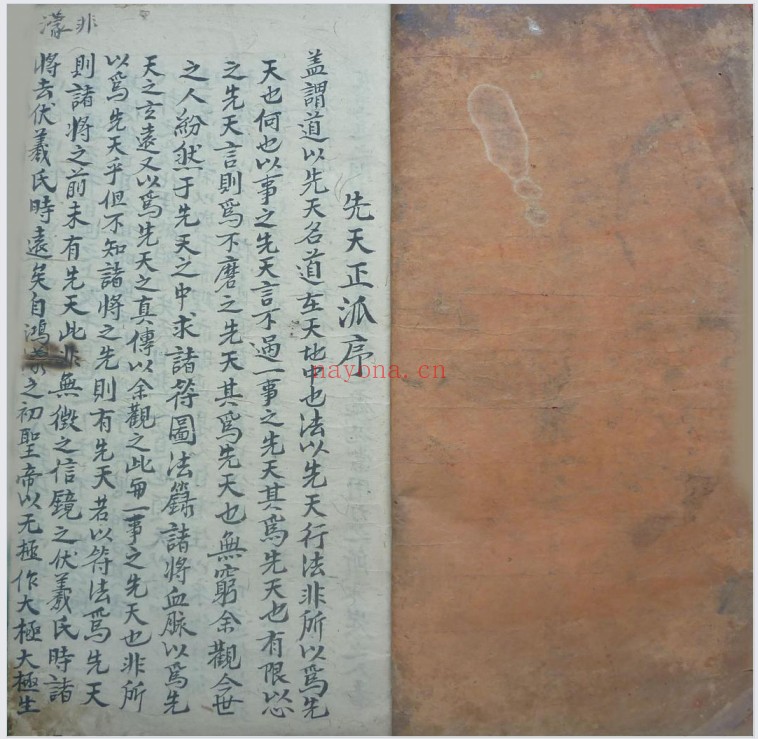 先天正派序
蓋謂道以先天名道在天地中也法以先天行法非所以爲先
天也何也以事之先天言不過一事之先天其爲先天也有限以心
之先天言則爲不磨之先天其爲先天也無窮余觀今世
之人紛然于先天之中求諸符圖法籙諸將血脈以爲先
天之玄遠又以爲先天之真傳以余觀之此毎一事之先天也非所
以爲先天乎但不知諸將之先則有先天若以符法爲先天
則諸將之前未有先天此非無徵之信鏡之伏羲氏時諸
將去伏羲氏時遠矣自鴻濛之初聖帝以无極作大極大極生
非
濛
nayona.cn